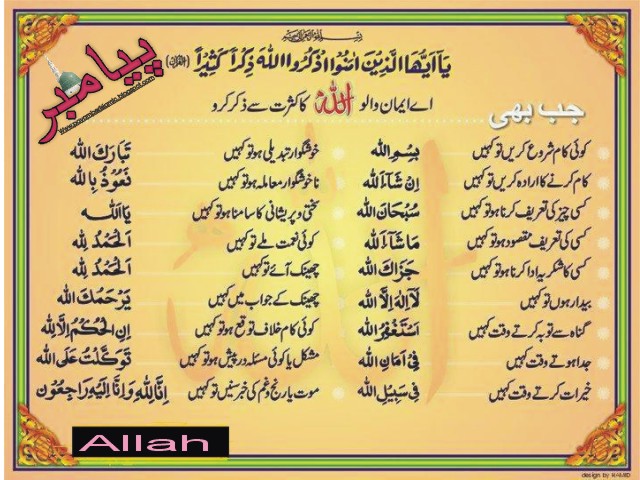 بسم الله الرحمن الرحیم
پیامبر
یَآ اَیُّھَا الَّذِیْنَ اٰمَنُوا اذْکُرُوا اللّٰهَ ذِکْرًا کَثِیْرًا (القرآن)
اے ایمان والو اللہ کا کثرت سے ذکر کرو
جب بھی
کوئی کام شروع کریں تو کہیں بِسْمِ اللّٰه
خوشگوار تبدیلی ہو تو کہیں تَبَارَکَ اللّٰه
کام کرنے کا ارادہ کریں تو کہیں اِنْ شَآءَ اللّٰه
ناخوشگوار معاملہ ہو تو کہیں نَعُوْذُ بِاللّٰه
کسی چیز کی تعریف کرنا ہو تو کہیں سُبْحَانَ اللّٰه
سختی و پریشانی کا سامنا ہو تو کہیں یَا اَللّٰه
کسی کی تعریف مقصود ہو تو کہیں مَا شَآءَ اللّٰه
کوئی نعمت ملے تو کہیں اَلْحَمْدُ لِلّٰه
کسی کا شکریہ ادا کرنا ہو تو کہیں جَزَاکَ اللّٰه
چھینک آئے تو کہیں اَلْحَمْدُ لِلّٰه
بیدار ہوں تو کہیں لَآ اِلٰهَ اِلَّا اللّٰه
چھینک کے جواب میں کہیں یَرْحَمُکَ اللّٰه
گناہ سے توبہ کرتے وقت کہیں اَسْتَغْفِرُ اللّٰه
کوئی کام خلاف توقع ہو تو کہیں اِنِ الْحُکْمُ اِلَّا لِلّٰه
جدا ہوتے وقت کہیں فِیْ اَمَانِ اللّٰه
مشکل یا کوئی مسئلہ درپیش ہو تو کہیں تَوَکَّلْتُ عَلَی اللّٰه
خیرات کرتے وقت کہیں فِیْ سَبِیْلِ اللّٰه
موت یا رنج و غم کی خبر سنیں تو کہیں اِنَّا لِلّٰهِ وَاِنَّا اِلَیْهِ رَاجِعُوْن
Allah
design by HAMID